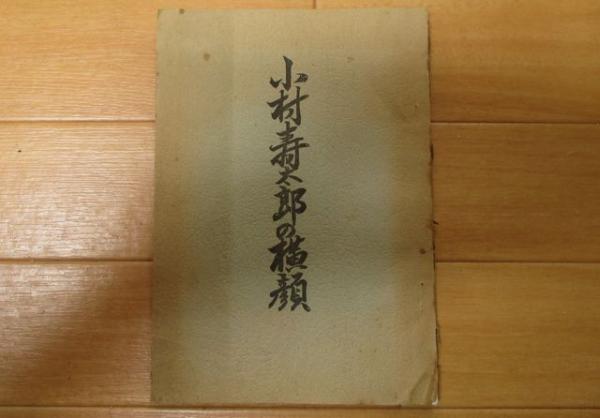 小村寿太郎の横顔